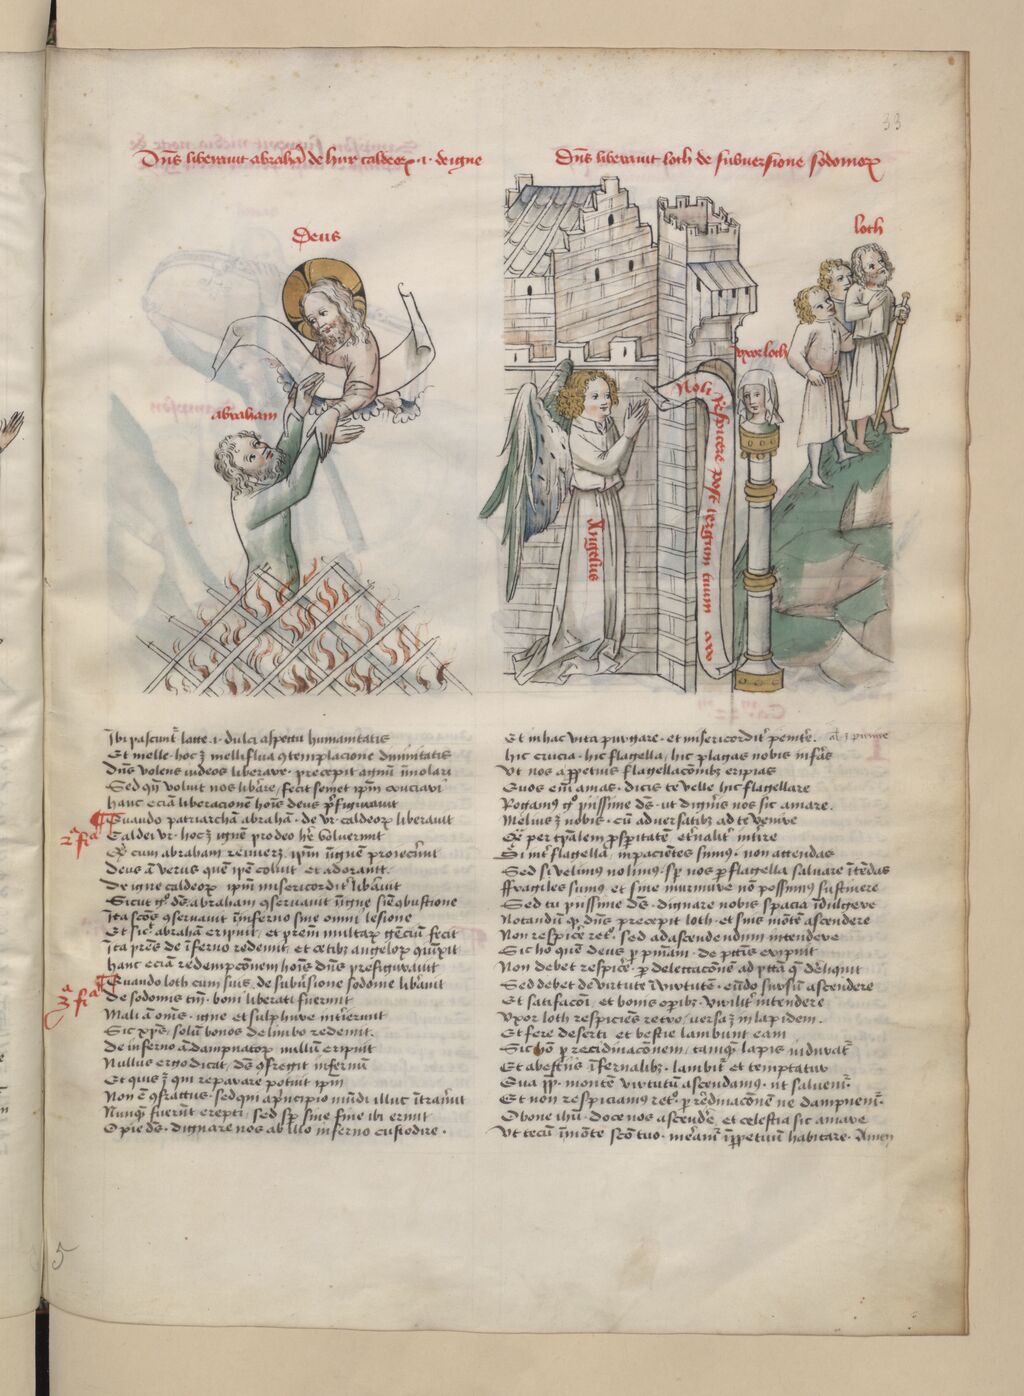 33
Dn̄s liberauit abrahā de hur caldeoꝝ · i · de igne
Deus
abraham
Dn̄s liberauit loth de subuersione sodomoꝝ
loth
vxor loth
Noli respicere post tergum tuum
Angelus
Ibi pascunt͛ lacte · i · dulci aspectu humanitatis
Et melle · hoc ꝫ melliflua ꝯtemplacione diuinitatis
Dn̄s volens iudeos liberare · precepit agnū īmolari
Sed qn̄ voluit nos libāre / fecit semet ipm̄ cruciari
Hanc eciā liberacionē hoīs deus p̄figurauit
Quando patriarchā abrahā · de vr caldeoꝝ liberauit
Caldei vr · hoc ꝫ ignē pro deo
cum abraham ipm̄ ī ignē proiecerūt
Deus ā verus quē ip̄e coluit et adorauit
De igne caldeoꝝ ipm̄ misericordit͛ libāuit
Sicut g̊ de͞s abraham ꝯseruauit ī igne sine ꝯbustione
Ita sctōs ꝯseruauit ī inferno sine omni lesione
Et sic͛ abrahā eripuit / et prem̄ multaꝝ genciū fecit
Ita pr̄es de īferno redemit et cetibus angeloꝝ
Hanc eciā redempcōnem hoīs dn̄s prefigurauit
Quando loth cum suis · de subūsione sodome libāuit
De sodomis tm̄ · boni liberati fuerunt
Mali ā om̄s · igne et sulphure interierunt
Sic xp̄s / solū bonos de limbo redemit ·
De inferno ā dampnatoꝝ nullū eripuit
Nullus ergo dicat / dn̄s ꝯfregit infernū
Et quis ꝫ qui reparare potuit ipm̄
Non ē ꝯfractus · sed qui a principio mūdi illuc ītrauit
Nunq̄ fuerūt erepti / sed semper sine fine ibi erunt
O pie de͞s · dignare nos ab illo inferno custodire ·
Et in hac vita purgare · et misericordit͛ punire ·
Hic crucia · hic flagella / hic plagas nobis infēas
Vt nos a ppetuis flagellacōnibꝫ eripias
Quos eīm amas · dicis te velle hic flagellare
Rogamꝰ g̊ piissime de͞s · ut digneris nos sic amare ·
Meliusꝫ nobis · cū aduersitatibꝫ ad te venire
per tp̄alem prosperitatē etnalit͛ interire
Si inter flagella inpacientes sumꝰ · non attendas
Sed si velimus nolimus semper nos per flagella saluare ītendas
Fragiles sumus et sine murmure non possumus sustinere
Sed tu piissime de͞s · dignare nobis spacia īdulgere
Notandū qꝫ dn̄s precepit loth · et suis mōtē ascendere
Non respicere retro · sed ad ascendendum intendere
Sic hō que deus per penitentiam · de peccatis eripuit
Non debet respicere · per delectacōnē ad peccata que dereliquit
Sed debet de virtute ī virtutē · eūdo sursū ascendere
Et satisfaccōni et bonis operibꝫ · virilit͛ intendere
Vxor loth respiciēs retro / versa ꝫ in lapidem ·
Et fere deserti et bestie lambunt eam
Sic hō per recidiuacōnem / tamqͣ lapis indurat͛
Et a bestiis īfernalibꝫ · lambit͛ et temptatur
montē virtutū ascendamꝰ · ut saluemur ·
Et non respiciamꝰ retro per recidiuacōnē ne dampnemur ·
O bone ihū · doce nos ascendere et celestia sic amare
Vt tecū ī mōte scō tuo · mereamur īppetuū habitare · Amen
5